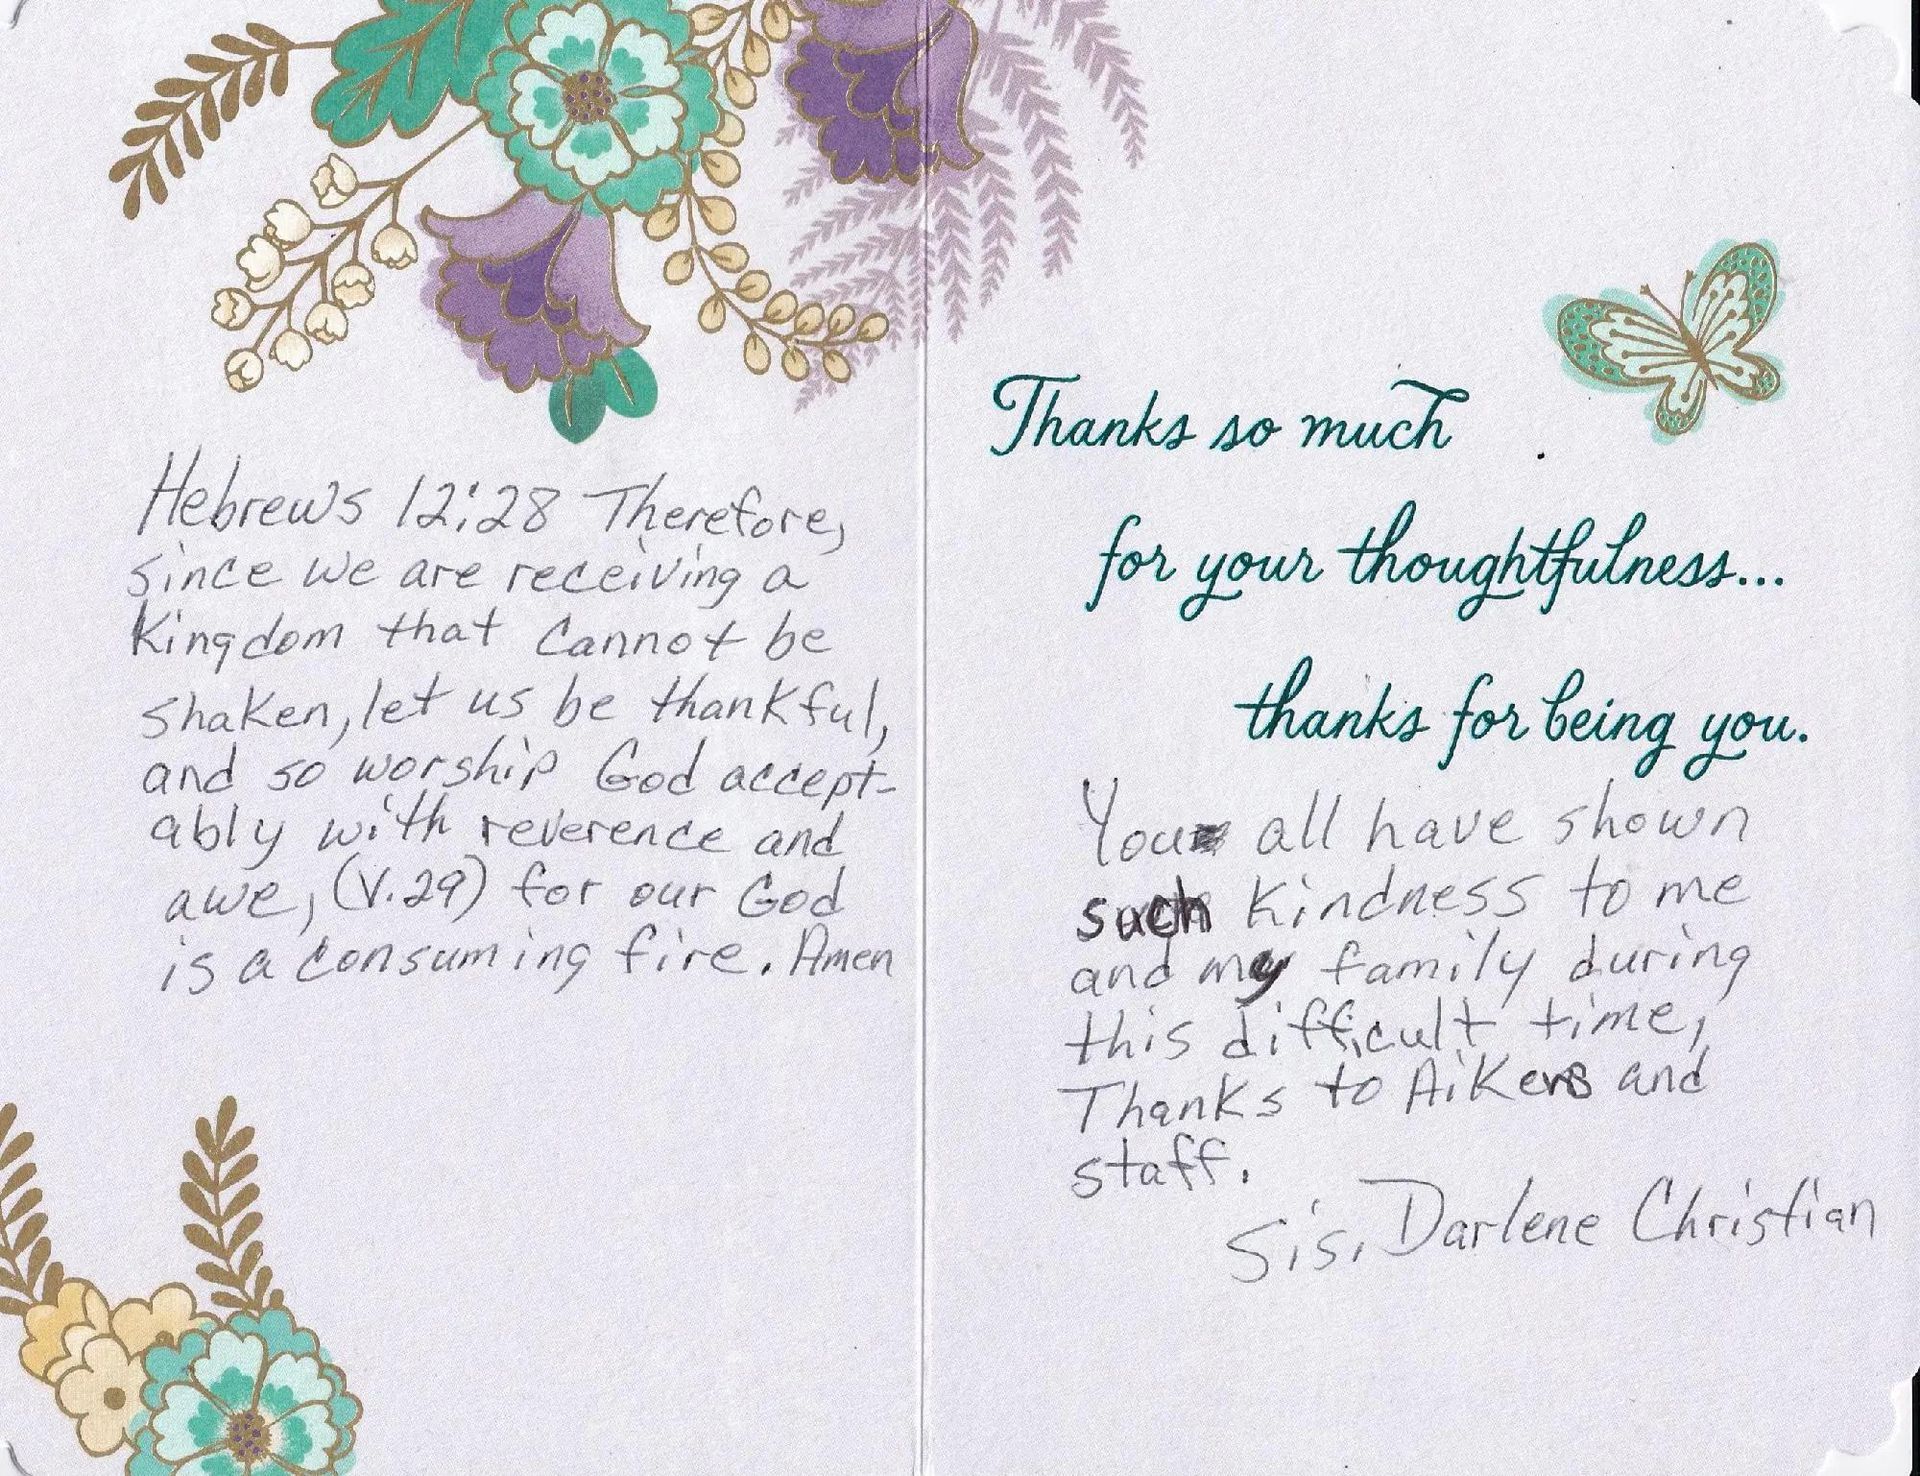 Hebrews 12:28 Therefore,
since we are receiving a
Kingdom that cannot be
shaken, let us be thankful,
and so worship God accept-
ably with reverence and
awe, (V.29) for our God
is a consuming fire. Amen
Thanks so much
for your thoughtfulness...
thanks for being you.
You all have shown
such kindness to me
and my family during
this difficult time,
Thanks to Aikens and
staff.
Sis. Darlene Christian